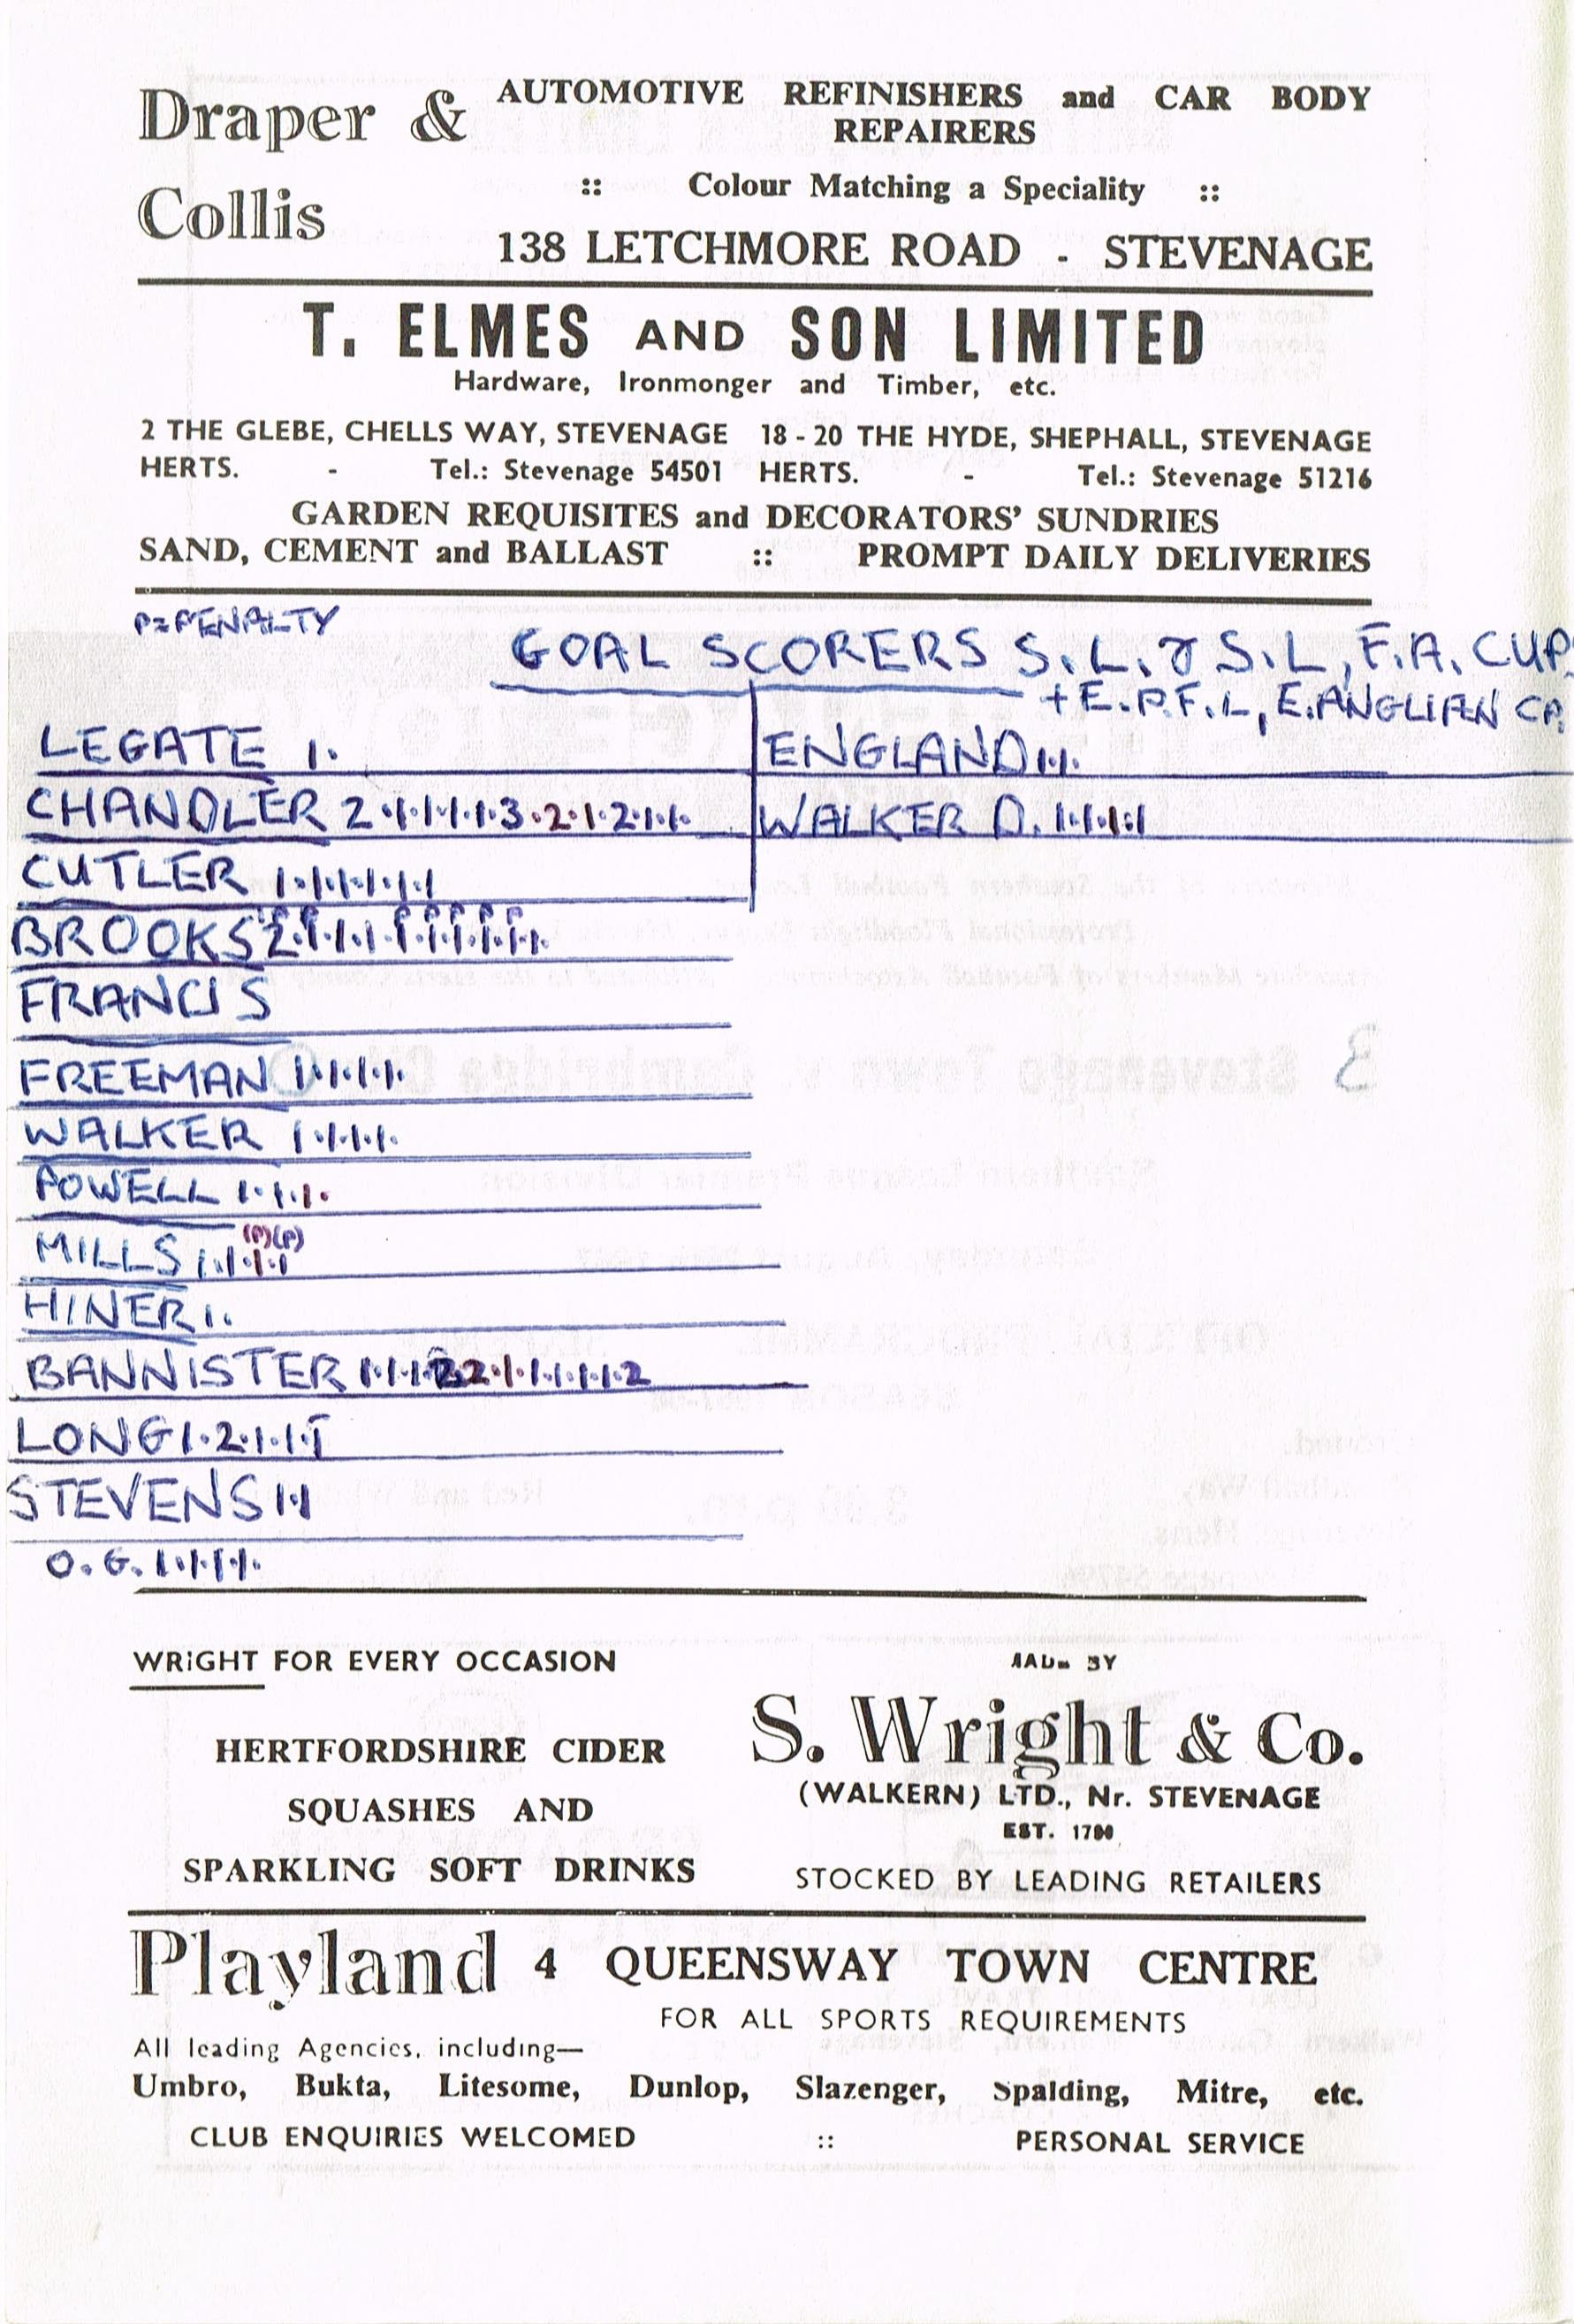 Draper & Collis
AUTOMOTIVE REFINISHERS and CAR BODY
REPAIRERS
:: Colour Matching a Speciality ::
138 LETCHMORE ROAD - STEVENAGE
T. ELMES AND SON LIMITED
Hardware, Ironmonger and Timber, etc.
2 THE GLEBE, CHELLS WAY, STEVENAGE 18 - 20 THE HYDE, SHEPHALL, STEVENAGE
HERTS. - Tel.: Stevenage 54501 HERTS. - Tel.: Stevenage 51216
GARDEN REQUISITES and DECORATORS' SUNDRIES
SAND, CEMENT and BALLAST :: PROMPT DAILY DELIVERIES
P=PENALTY
GOAL SCORERS S.L. & S.L, F.A. CUP
+ E.P.F.L, E.ANGLIAN CP.
LEGATE 1.
CHANDLER 2.1.1.1.1.3.2.1.2.1.1.
CUTLER 1.1.1.1.1.1
BROOKS
FRANCIS
FREEMAN 1.1.1.1.1.
WALKER 1.1.1.1.
POWELL 1.1.1.
MILLS 1.1.1.1.1 (P)(P)
HINER 1.
BANNISTER
LONG 1.2.1.1.1
STEVENS 1.1
O.G. 1.1.1.1.
ENGLAND 1.1.
WALKER D. 1.1.1.1
WRIGHT FOR EVERY OCCASION
HERTFORDSHIRE CIDER
SQUASHES AND
SPARKLING SOFT DRINKS
BY
S. Wright & Co.
(WALKERN) LTD., Nr. STEVENAGE
EST.
STOCKED BY LEADING RETAILERS
Playland 4 QUEENSWAY TOWN CENTRE
FOR ALL SPORTS REQUIREMENTS
All leading Agencies, including—
Umbro, Bukta, Litesome, Dunlop, Slazenger, Spalding, Mitre, etc.
CLUB ENQUIRIES WELCOMED :: PERSONAL SERVICE